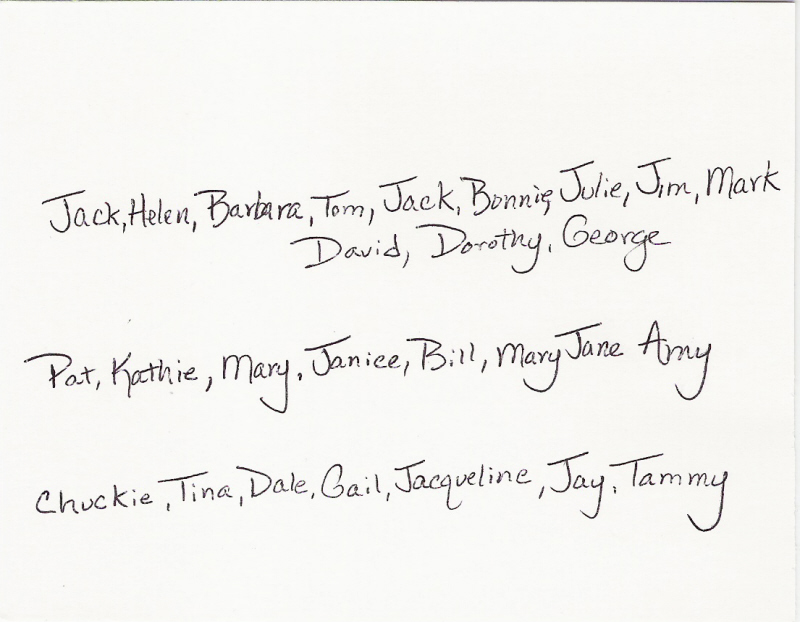 Jack, Helen, Barbara, Tom, Jack, Bonnie, Julie, Jim, Mark
David, Dorothy, George
Pat, Kathie, Mary, Janice, Bill, Mary Jane Amy
Chuckie, Tina, Dale, Gail, Jacqueline, Jay, Tammy